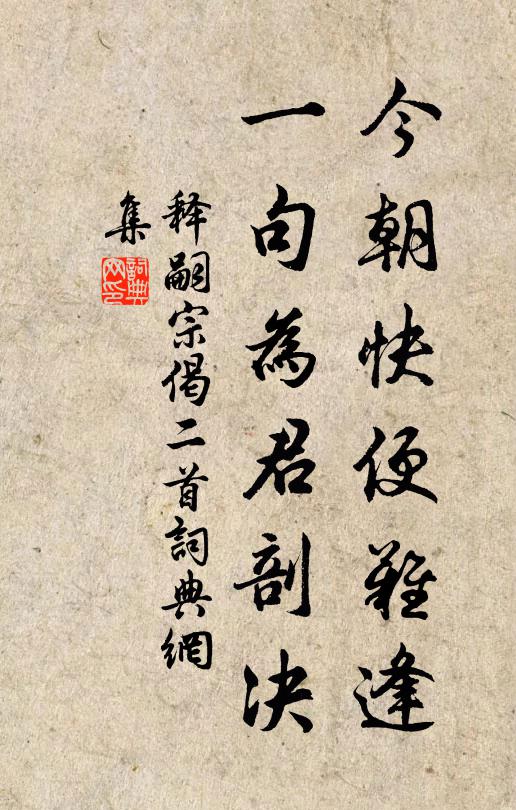 今朝快便難逢
一句為君剖决
释嗣宗偈二首詞典網
集
詞典
网印